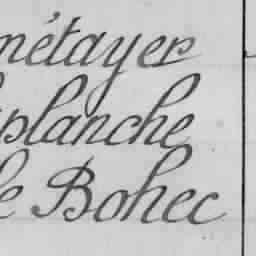 métayer
planche
le Bohec